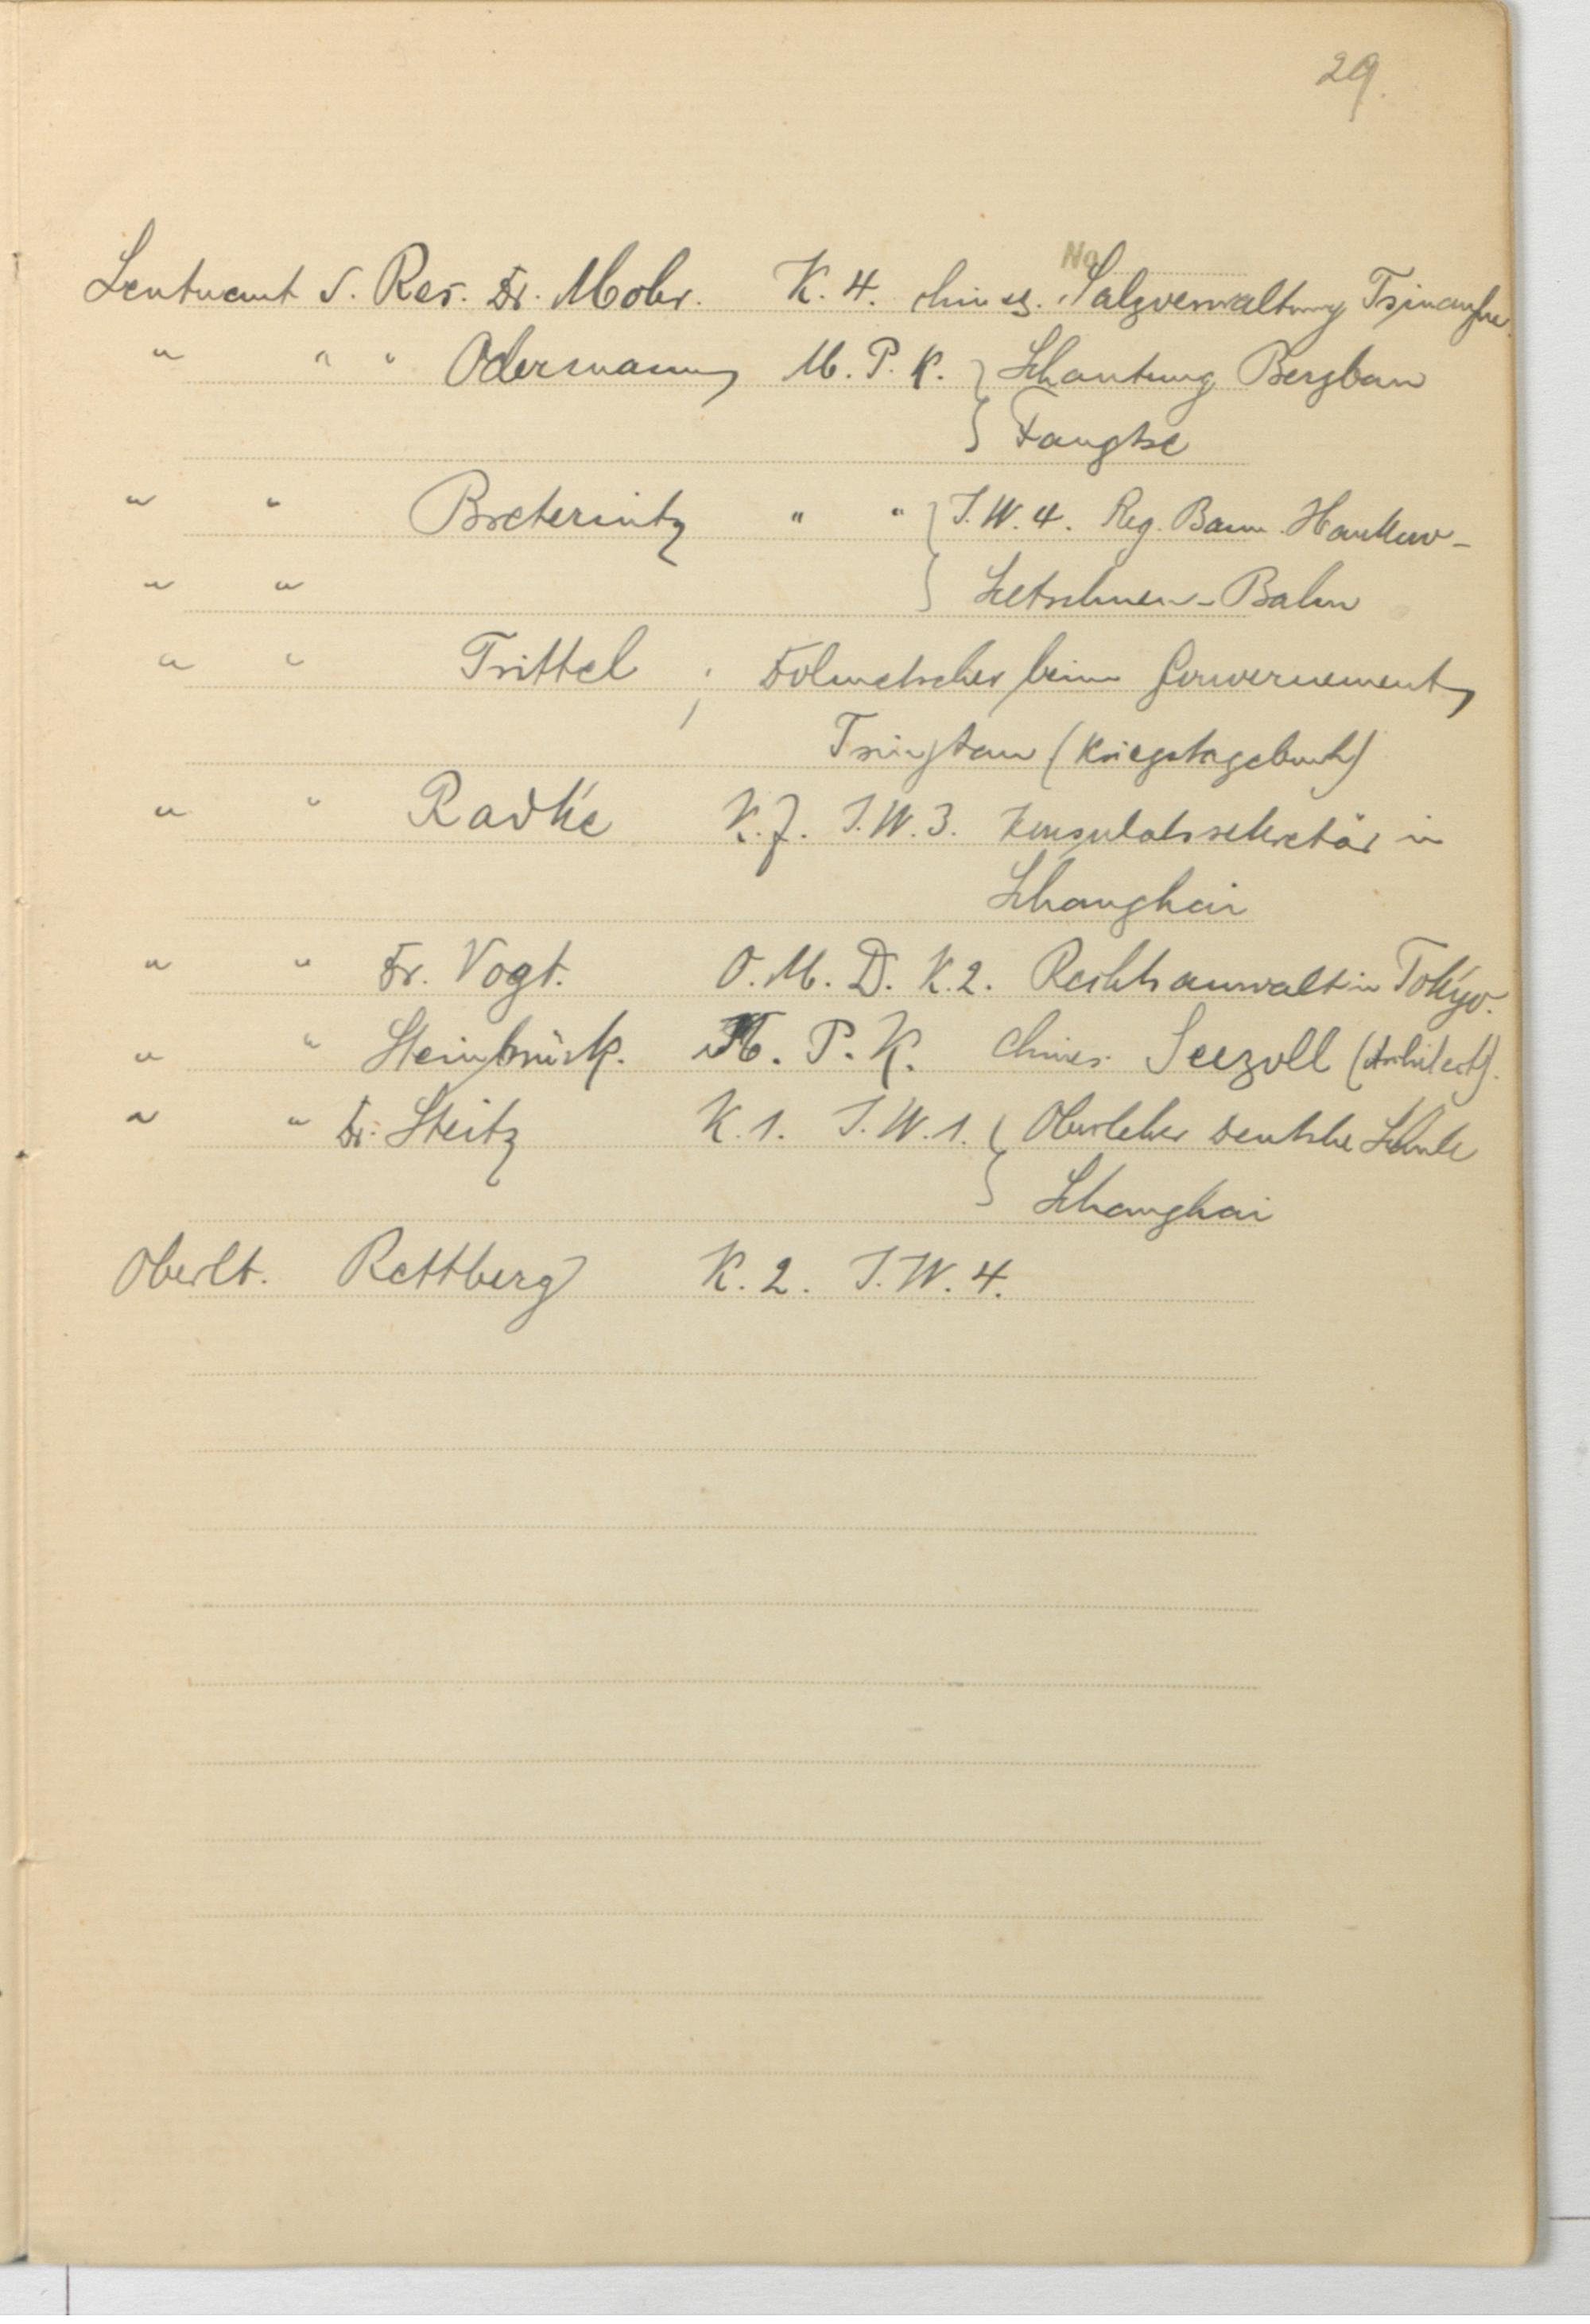 29.
Leutnant d. Res. Dr. Mohr. K. 4. chines. Salzverwaltung Tsinanfu.
" " " Odermann, M. P. K. } Schantung Bergbau
} Fangtse
" " Breternitz " " } I.W. 4. Reg. Baum. Hankow-
" " } Szetschuen-Bahn
" " Trittel ; Dolmetscher beim Gouvernement,
Tsingtau (Kriegstagebuch)
" " Radke K. 7. I.W. 3. Konsulatssekretär in
Schanghai
" " Dr. Vogt. O. M. D. K. 2. Rechtsanwalt in Tokyo.
" " Steinbrück. M. P. K. chines. Seezoll (Architect).
" " Dr. Steitz K. 1. I.W. 1. { Oberlehrer deutsche Schule
} Schanghai
Oberlt. Rettberg K. 2. I.W. 4.